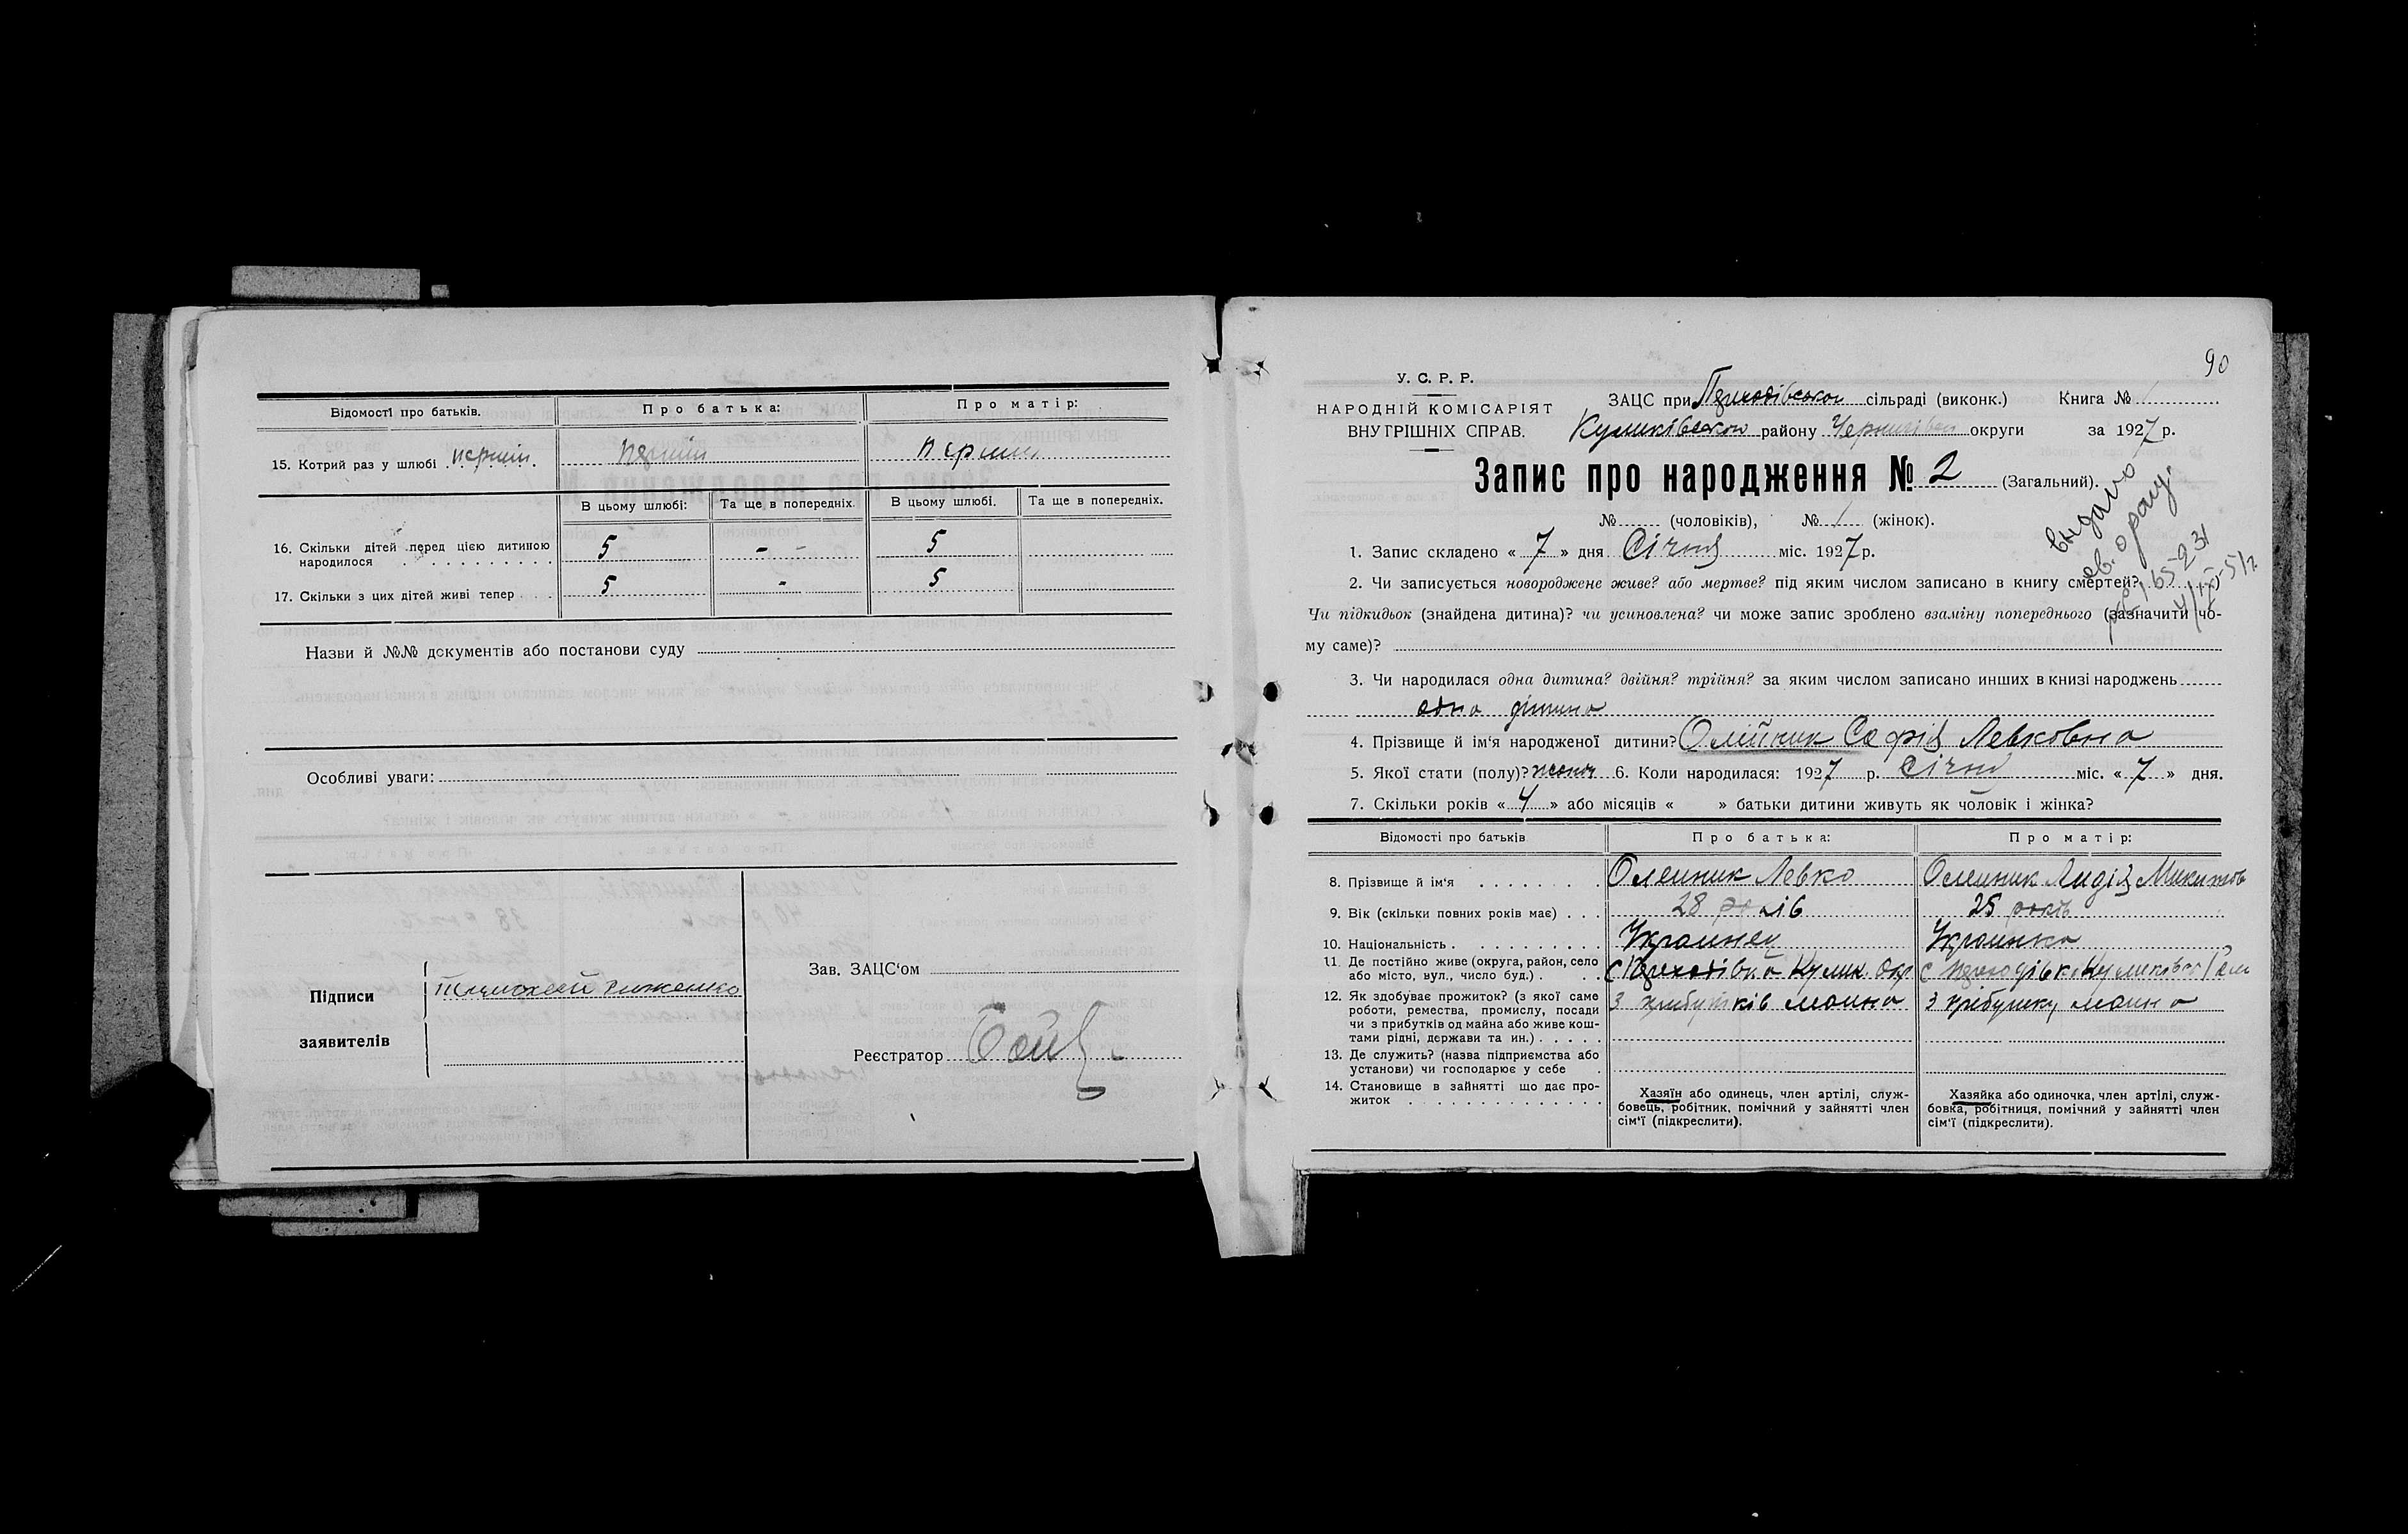 Відомості про батьків.
Про батька:
Про матір:
15. Котрий раз у шлюбі . перший .
перший
перший
В цьому шлюбі:
Та ще в попередніх.
В цьому шлюбі.
Та ще в попередніх.
16. Скільки дітей перед цією дитиною
народилося . . . . . . . . . .
5
- -
5
17. Скільки з цих дітей живі тепер . . .
5
-
5
Назви й №№ документів або постанови суду
Особливі уваги:
Підписи
заявителів
Зав. ЗАЦС'ом
Реєстратор
90
У. С. Р. Р.
НАРОДНІЙ КОМІСАРІЯТ
ВНУТРІШНІХ СПРАВ.
ЗАЦС при сільраді (виконк.)
Книга №
Куликівском району Чернигівскои округи
за 1927 р.
Запис про народження № 2 (Загальний).
№ (чоловіків), № 1 (жінок).
видано
1. Запис складено « 7 » дня Січня міс. 1927 р.
2. Чи записується новороджене живе? або мертве? під яким числом записано в книгу смертей?
Чи підкидьок (знайдена дитина)? чи усиновлена? чи може запис зроблено взаміну попереднього (зазначити чо-
му саме)?
3. Чи народилася одна дитина? двійня? трійня? за яким числом записано инших в книзі народжень
одна дітина
4. Прізвище й ім'я народженої дитини? Олійник Софія Левковна
5. Якої стати (полу)? жоноч 6. Коли народилася: 1927 р. Січня міс. « 7 » дня.
7. Скільки років « 4 » або місяців « » батьки дитини живуть як чоловік і жінка?
Відомості про батьків
Про батька:
Про матір:
8. Прізвище й ім'я . . . . . . .
Олеиник Левко
Олеиник Лидія Микитов
9. Вік (скільки повних років має) . . .
28 років
25 років
10. Національність . . . . . . . . . .
Украинец
Украинка
11. Де постійно живе (округа, район, село
або місто, вул., число буд.) . . .
12. Як здобуває прожиток? (з якої саме
роботи, ремества, промислу, посади
чи з прибутків од майна або живе кош-
тами рідні, держави та ин.) . . . . .
З прибутків маина
З прібутку маина
13. Де служить? (назва підприємства або
установи) чи господарює у себе .
14. Становище в зайнятті що дає про-
житок . . . . . . . . . . . . . .
Хазяїн або одинець, член артілі, служ-
бовець, робітник, помічний у зайнятті член
сім'ї (підкреслити).
Хазяйка або одиночка, член артілі, служ-
бовка, робітниця, помічний у зайнятті член
сім'ї (підкреслити).